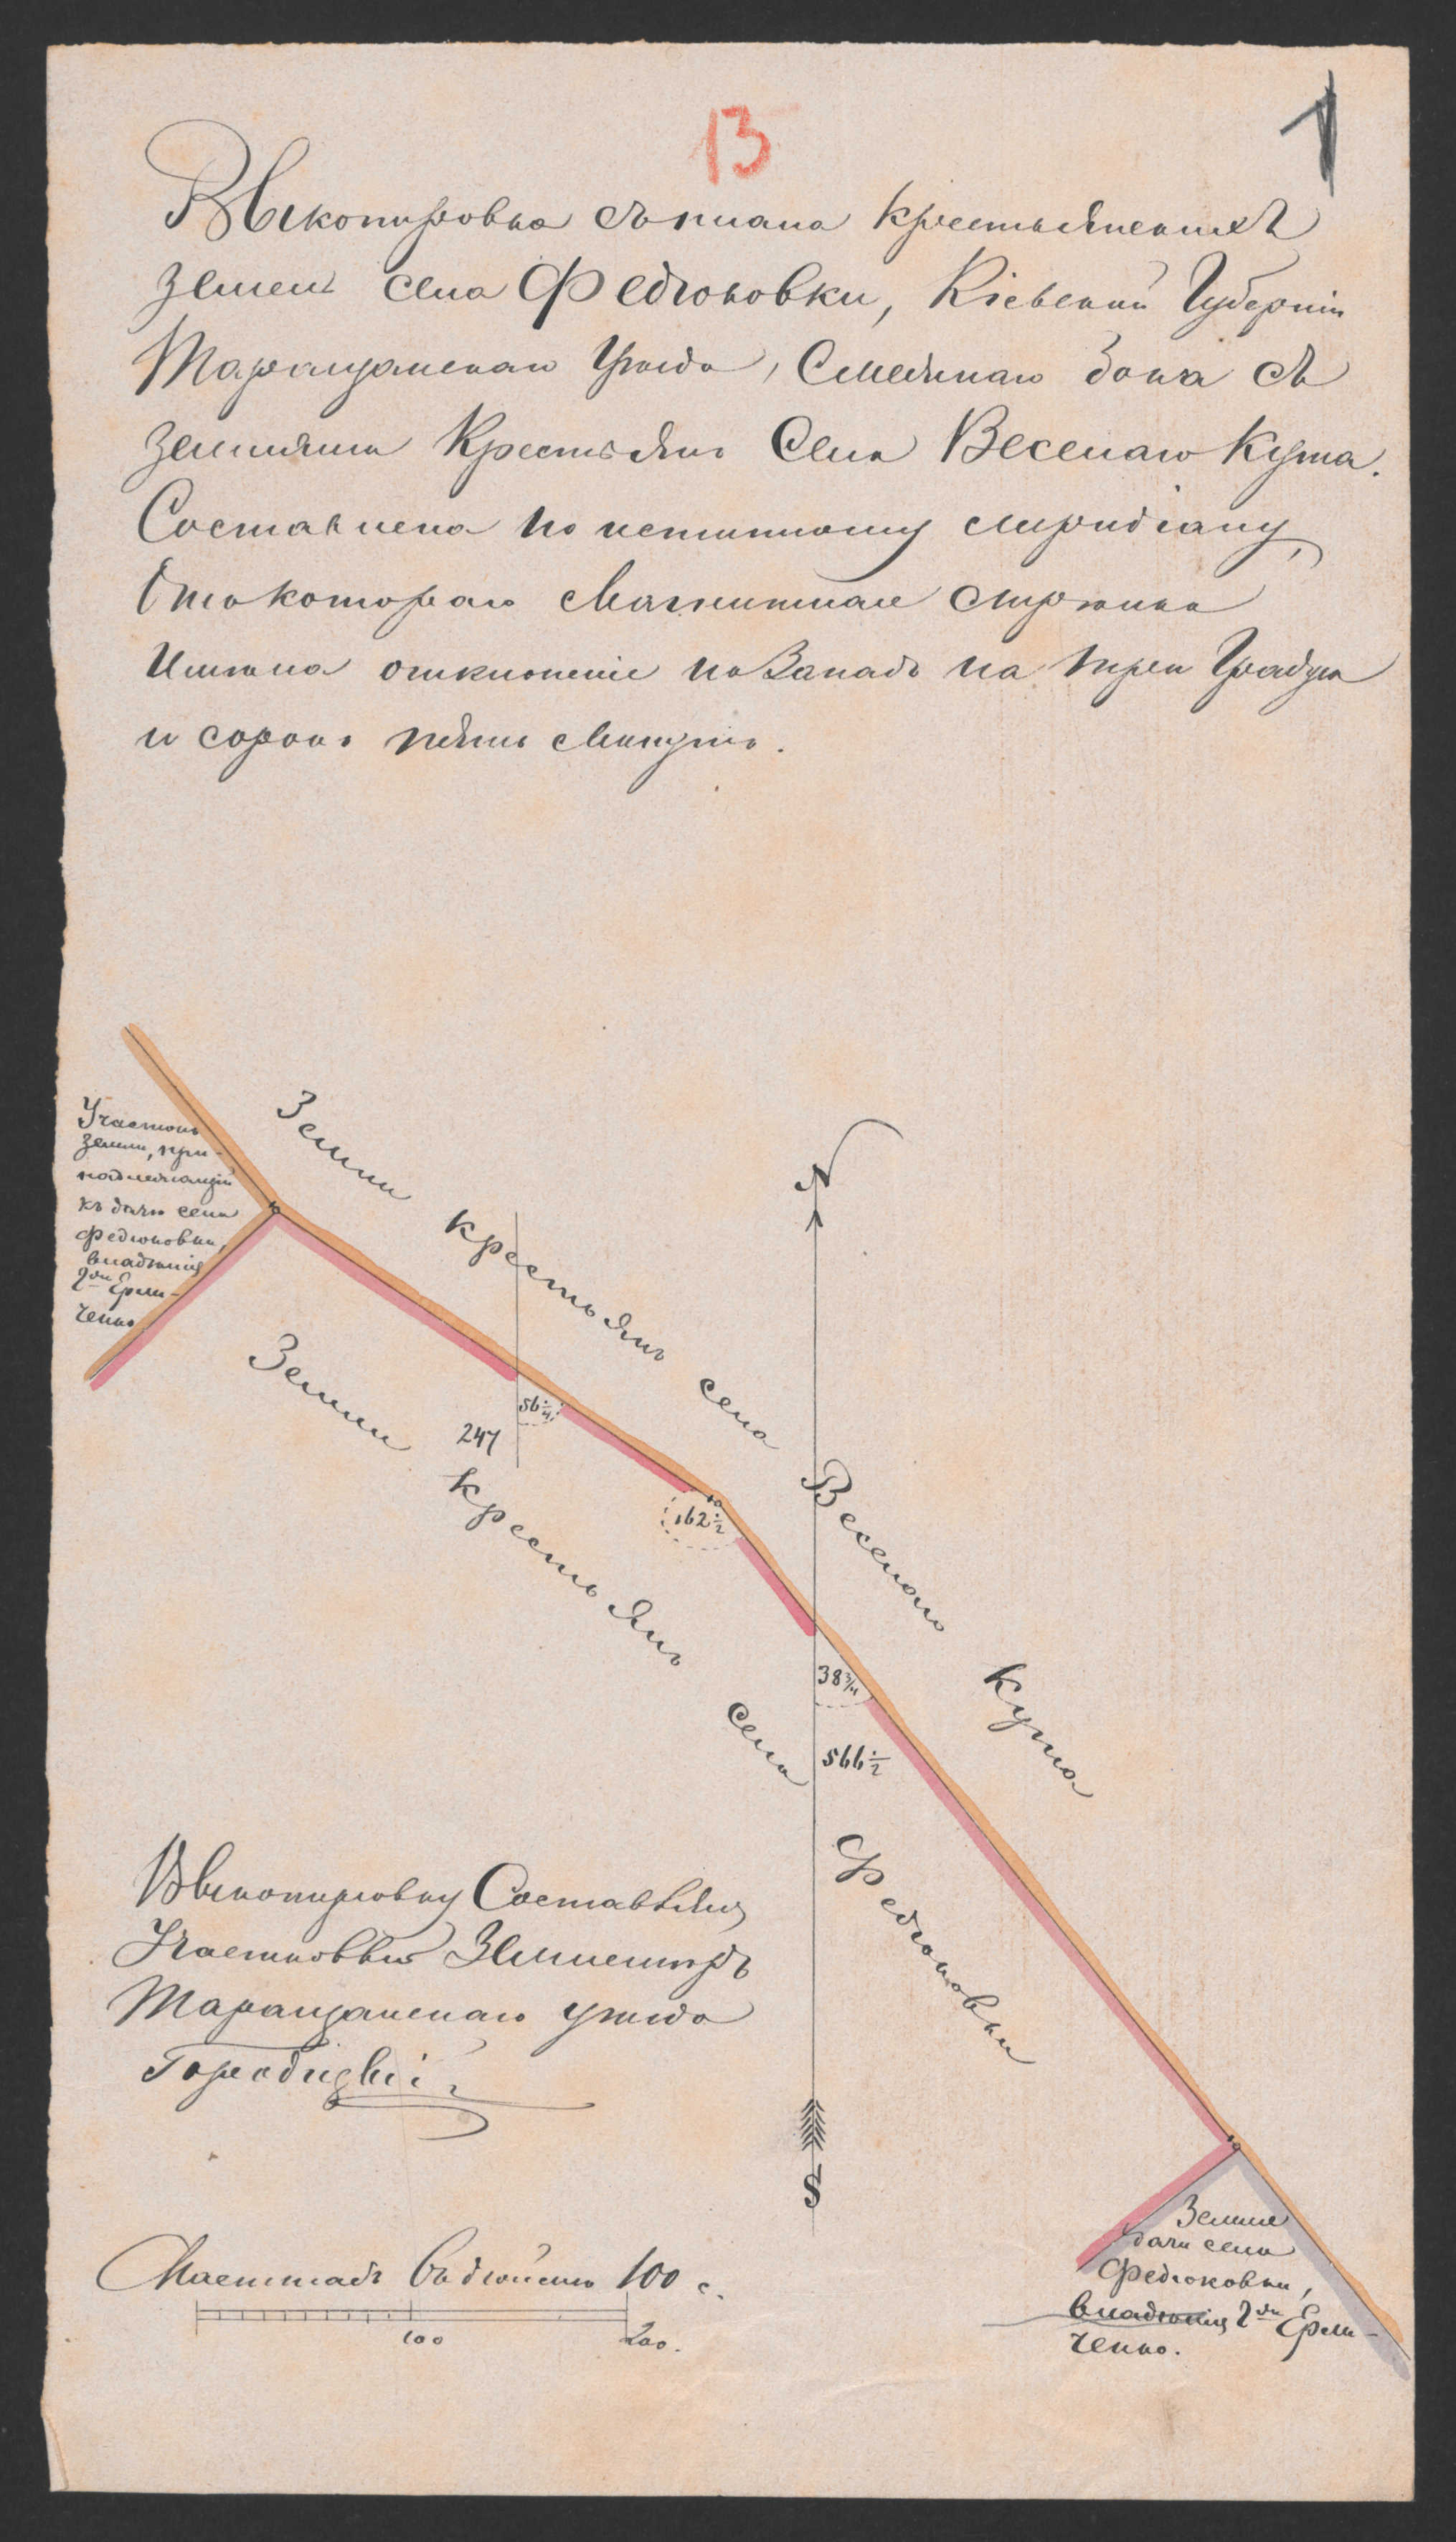 13
1
Выкопировка съ плана крестьянскихъ
земель села Федюковки, Кіевской Губерніи
Таращанскаго Уѣзда, Смежнаго бока съ
землями Крестьянъ Села Веселаго Кута.
Составлена по истинному меридіану,
Отъ котораго Магнитная стрѣлка
Имѣла отклоненіе на Западъ на три Градуса
и сорокъ пять Минутъ.
Участокъ
земли, при-
надлежащій
къ дачѣ села
Федюковки,
владѣнія
Г-на Ерли-
ченко
Земли крестьянъ села Веселаго Кута
N
56 1/4
247
162 1/2
38 3/4
566 1/2
Земли крестьянъ села Федюковки
Выкопировку Составлялъ
Участковый Землемѣръ
Таращанскаго уѣзда
Городицкій
S
Масштабъ въ дюймѣ 100 с.
100
200.
Земля
дачи села
Федюковки,
владѣнія Г-на Ерли-
ченко.